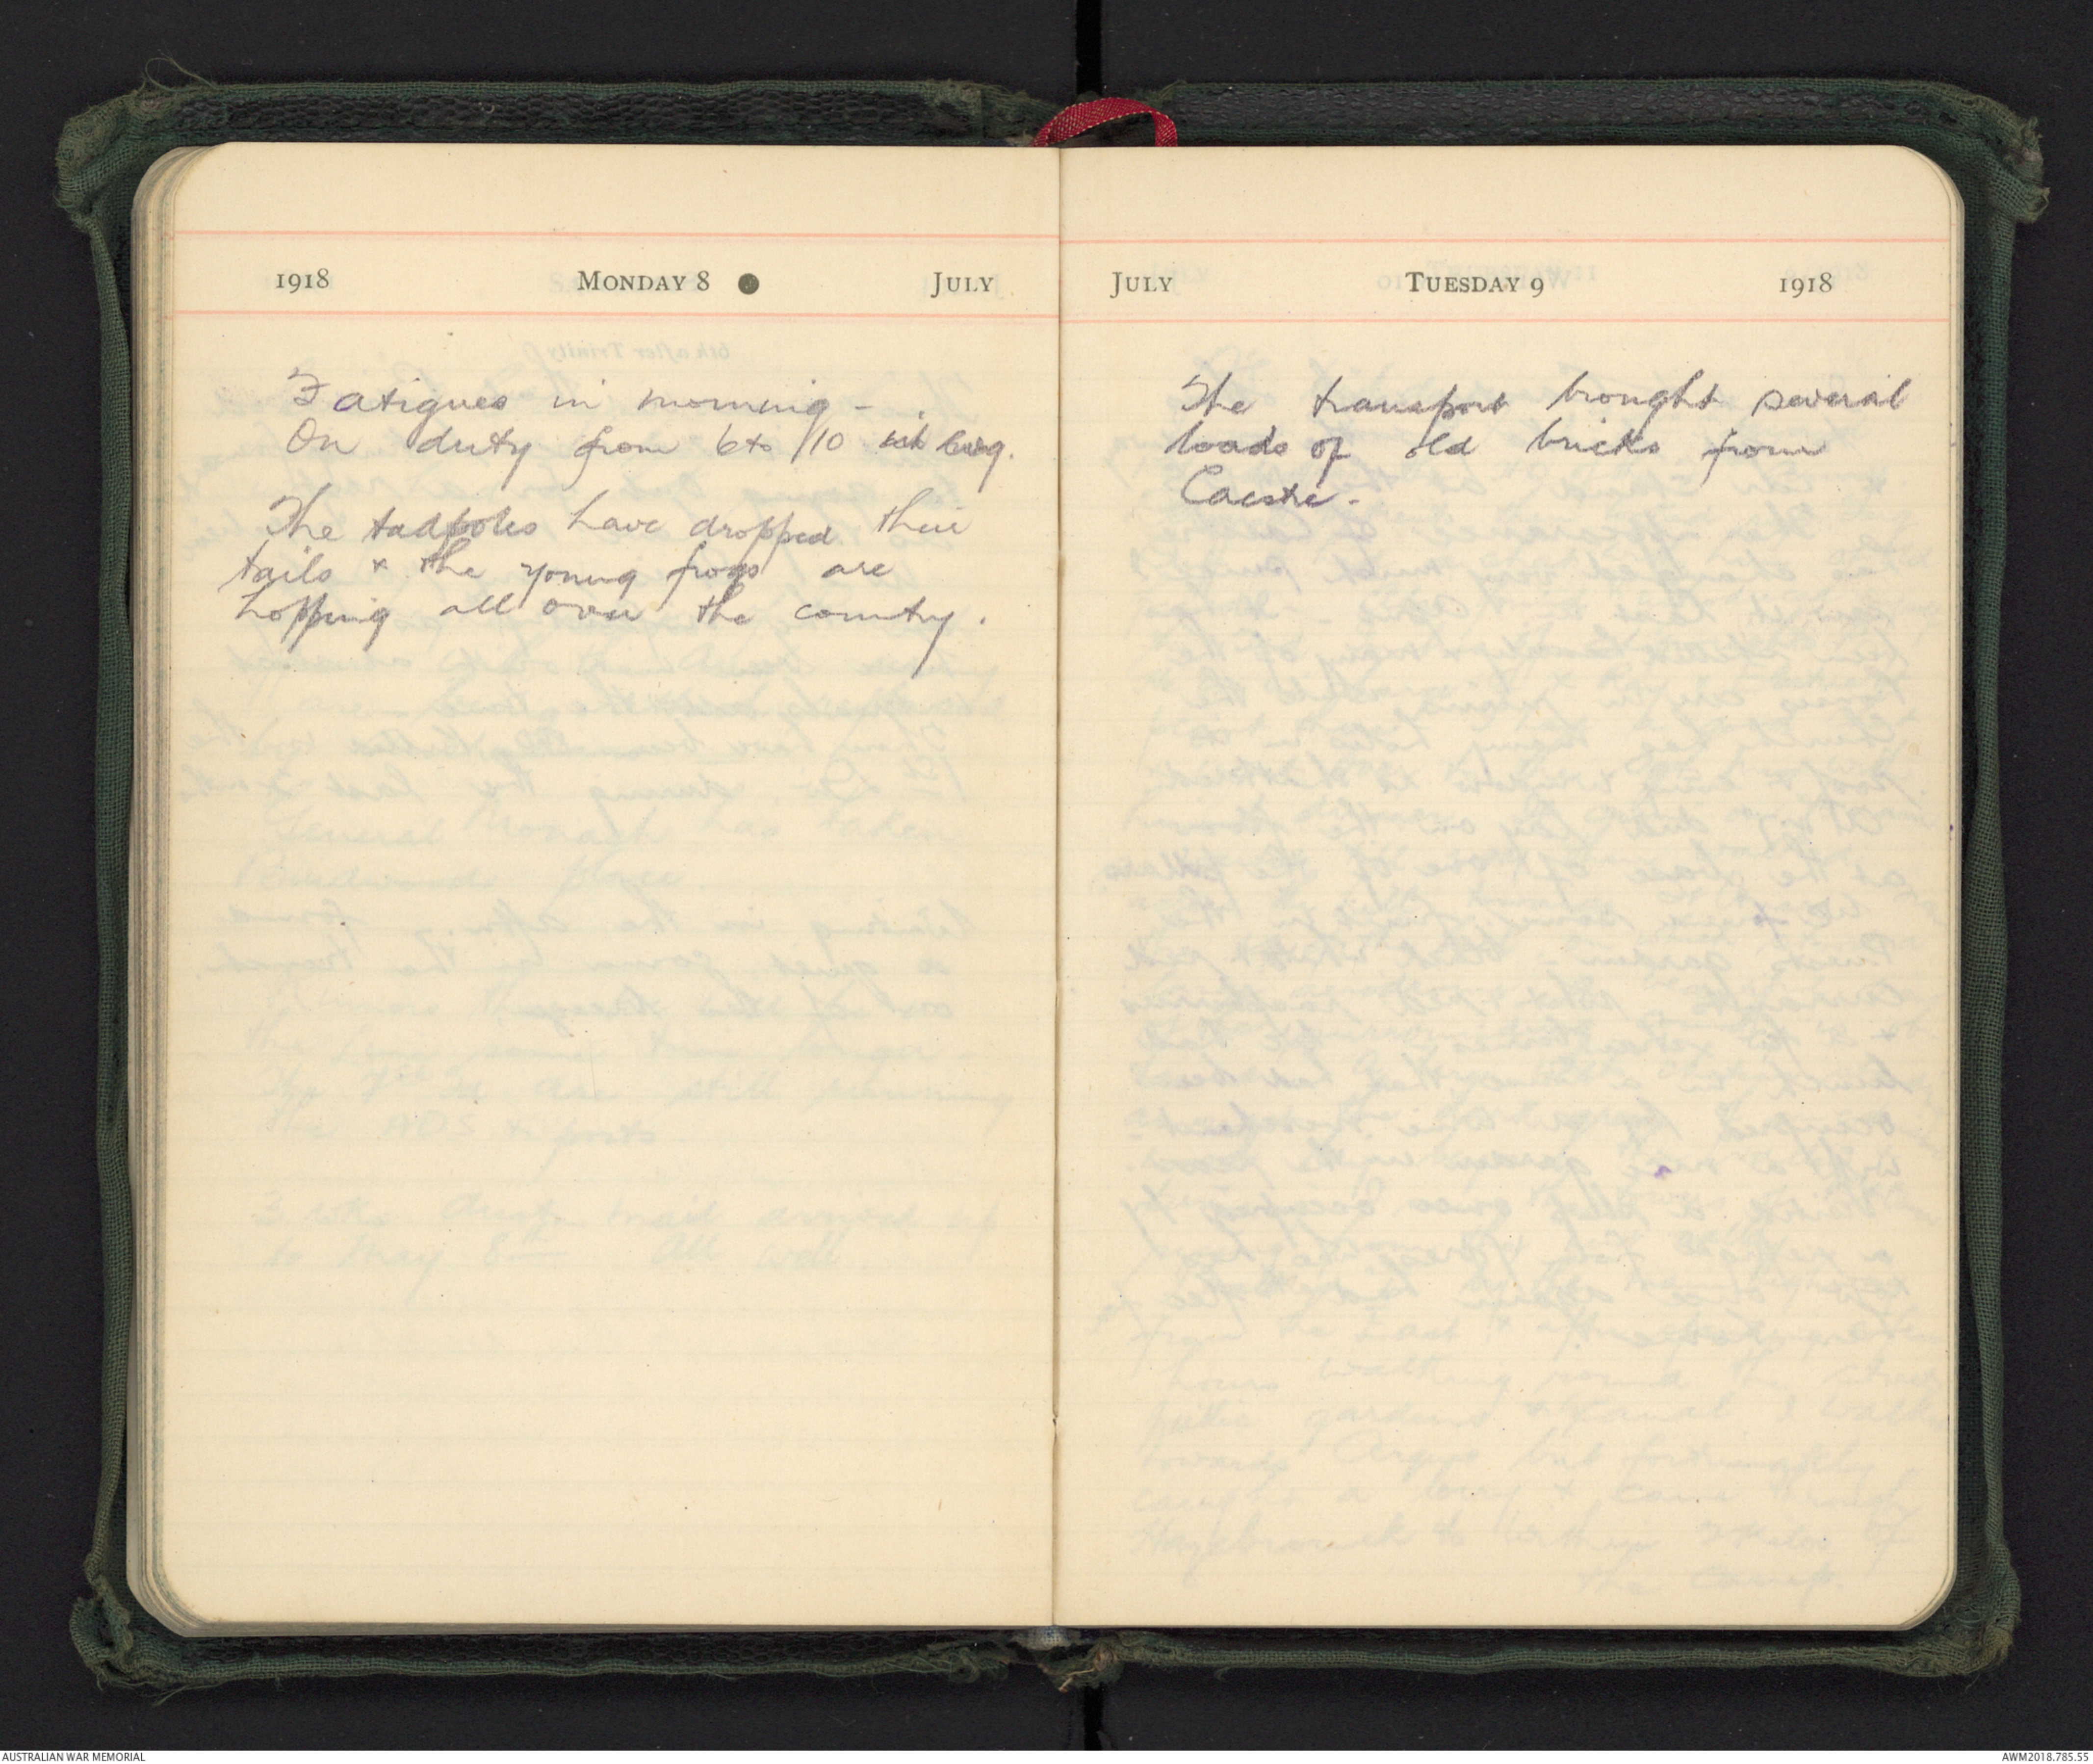 1918 MONDAY 8 ● JULY
Fatigues in morning -
On duty from 6 to 10
The tadpoles have dropped their
tails & the young frogs are
hopping all over the country.
JULY TUESDAY 9 1918
The transport brought several
loads of old bricks from
Caestre -
AUSTRALIAN WAR MEMORIAL
AWM2018.785.55